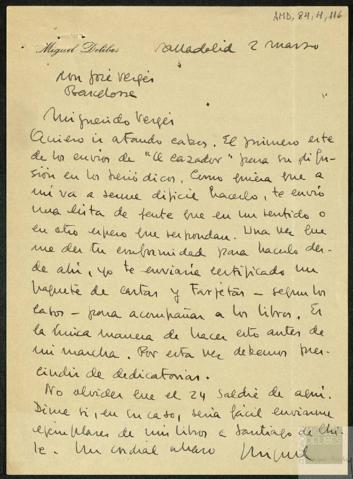 AMD, 84, 4, 116
Miguel Delibes
Valladolid 2 marzo
Don José Vergés
Barcelona
Mi querido Vergés
Quiero ir atando cabos. El primero este
de los envíos de "El cazador" para su difu-
sión en los periódicos. Como quiera que a
mí va a serme difícil hacerlo, te envío
una lista de gente que en un sentido o
en otro espero que respondan. Una vez que
me des tu conformidad para hacerlo des-
de ahí, yo te enviaría certificado un
paquete de cartas y tarjetas - según los
casos - para acompañar a los libros. Es
la única manera de hacer esto antes de
mi marcha. Por esta vez debemos pres-
cindir de dedicatorias.
No olvides que el 24 saldré de aquí.
Dime si, en su caso, sería fácil enviarme
ejemplares de mis libros a Santiago de Chi-
le. Un cordial abrazo Miguel